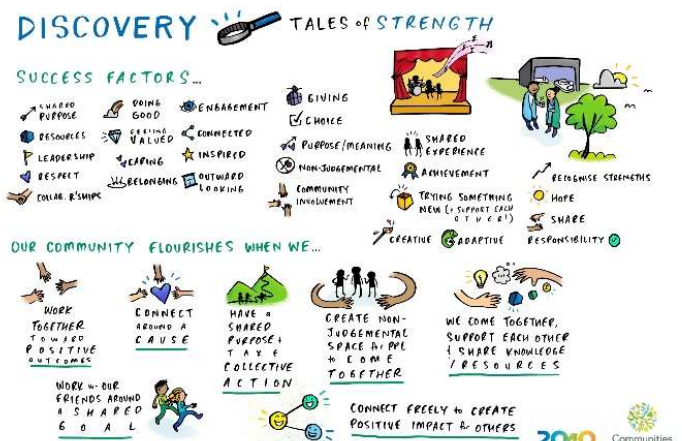 DISCOVERY
TALES of STRENGTH
SUCCESS FACTORS...
SHARED
PURPOSE
RESOURCES
LEADERSHIP
RESPECT
COLLAB. R'SHIPS
DOING
GOOD
FEELING
VALUED
CARING
BELONGING
ENGAGEMENT
CONNECTED
INSPIRED
OUTWARD
LOOKING
GIVING
CHOICE
PURPOSE/MEANING
NON-JUDGEMENTAL
COMMUNITY
INVOLVEMENT
SHARED
EXPERIENCE
ACHIEVEMENT
TRYING SOMETHING
NEW (+ SUPPORT EACH
OTHER!)
CREATIVE
ADAPTIVE
RECOGNISE STRENGTHS
HOPE
SHARE
RESPONSIBILITY
OUR COMMUNITY FLOURISHES WHEN WE...
WORK
TOGETHER
TOWARD
POSITIVE
OUTCOMES
CONNECT
AROUND A
CAUSE
HAVE A
SHARED
PURPOSE +
TAKE
COLLECTIVE
ACTION
CREATE NON-
JUDGEMENTAL
SPACE for PPL
to COME
TOGETHER
WE COME TOGETHER,
SUPPORT EACH OTHER
& SHARE KNOWLEDGE
/ RESOURCES
WORK w- OUR
FRIENDS AROUND
A SHARED
GOAL
CONNECT FREELY to CREATE
POSITIVE IMPACT for OTHERS
2040
Communities